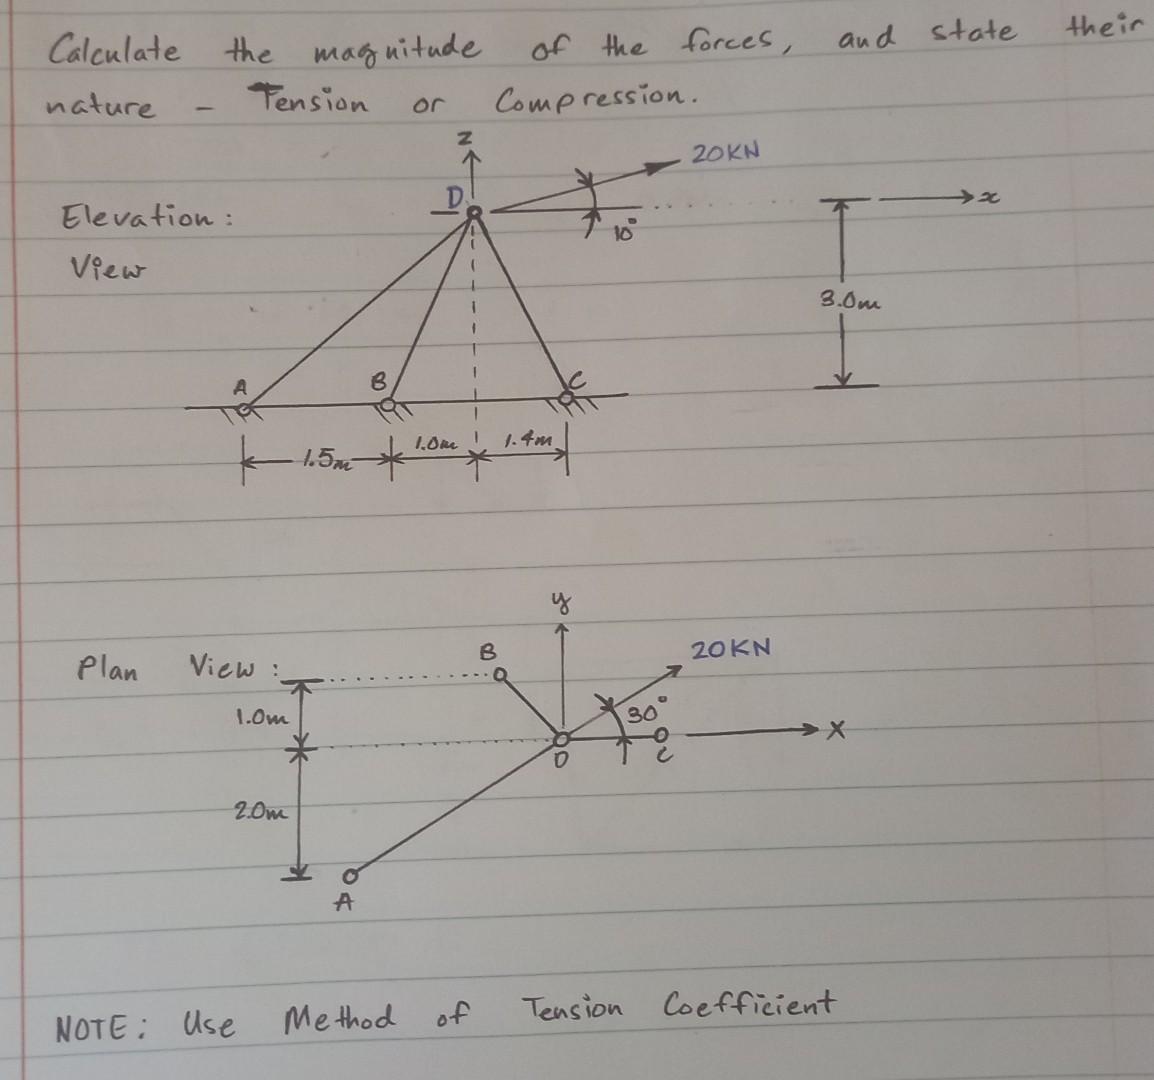 Calculate the magnitude of the forces, and state their
nature - Tension or Compression.
Z
20KN
D
Elevation:
View
10°
x
3.0m
A
B
C
1.5m
1.0m
1.4m
y
Plan View:
B
20KN
1.0m
30°
X
D
C
2.0m
A
NOTE: Use Method of Tension Coefficient